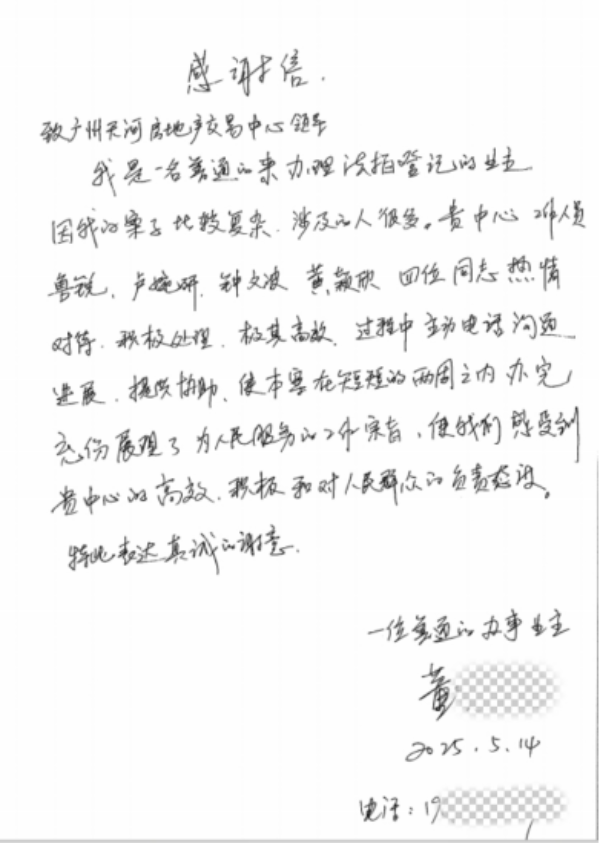 感谢信.
致广州天河房地产交易中心领导
我是一名普通的来办理法拍登记的业主
因我的案子比较复杂.涉及的人很多。贵中心工作人员
鲁锐、卢婉研、钟文波 黄颖欣 四位同志热情
对待.积极处理.极其高效.过程中主动电话沟通
进展.提供协助.使本案在短短的两周之内办完
充份展现了为人民服务的工作宗旨.使我们感受到
贵中心的高效.积极和对人民群众的负责态度。
特此表达真诚的谢意.
一位普通的办事业主
董
2025.5.14
电话:19